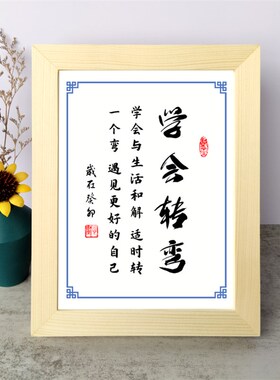 学会转弯
学会与生活和解 适时转
一个弯 遇见更好的自己
岁在癸卯